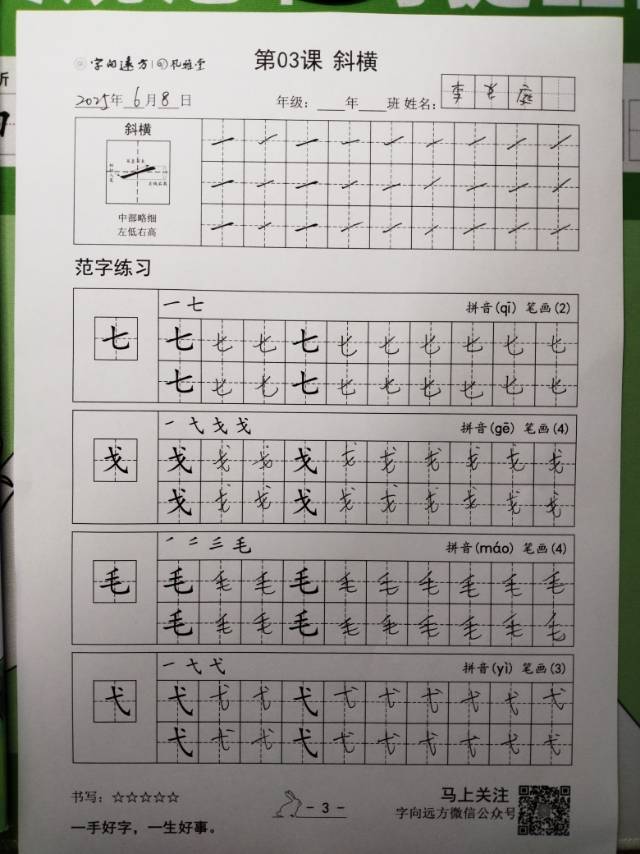 字向远方 礼雅堂 第03课 斜横
2025年 6月8日 年级：___年___班 姓名：李 庭
斜横
中部略细
左低右高
范字练习
一 七 拼音(qī) 笔画(2)
七 七 七 七 七 七 七 七 七 七 七
七 七 七 七 七 七 七 七 七 七
一 弋 戈 戈 拼音(gē) 笔画(4)
戈 戈 戈 戈 戈 戈 戈 戈 戈 戈 戈
戈 戈 戈 戈 戈 戈 戈 戈 戈 戈
一 二 三 毛 拼音(máo) 笔画(4)
毛 毛 毛 毛 毛 毛 毛 毛 毛 毛 毛
毛 毛 毛 毛 毛 毛 毛 毛 毛 毛
一 弋 弋 拼音(yì) 笔画(3)
弋 弋 弋 弋 弋 弋 弋 弋 弋 弋 弋
弋 弋 弋 弋 弋 弋 弋 弋 弋 弋
书写：☆☆☆☆☆ - 3 - 马上关注
字向远方微信公众号
一手好字，一生好事。